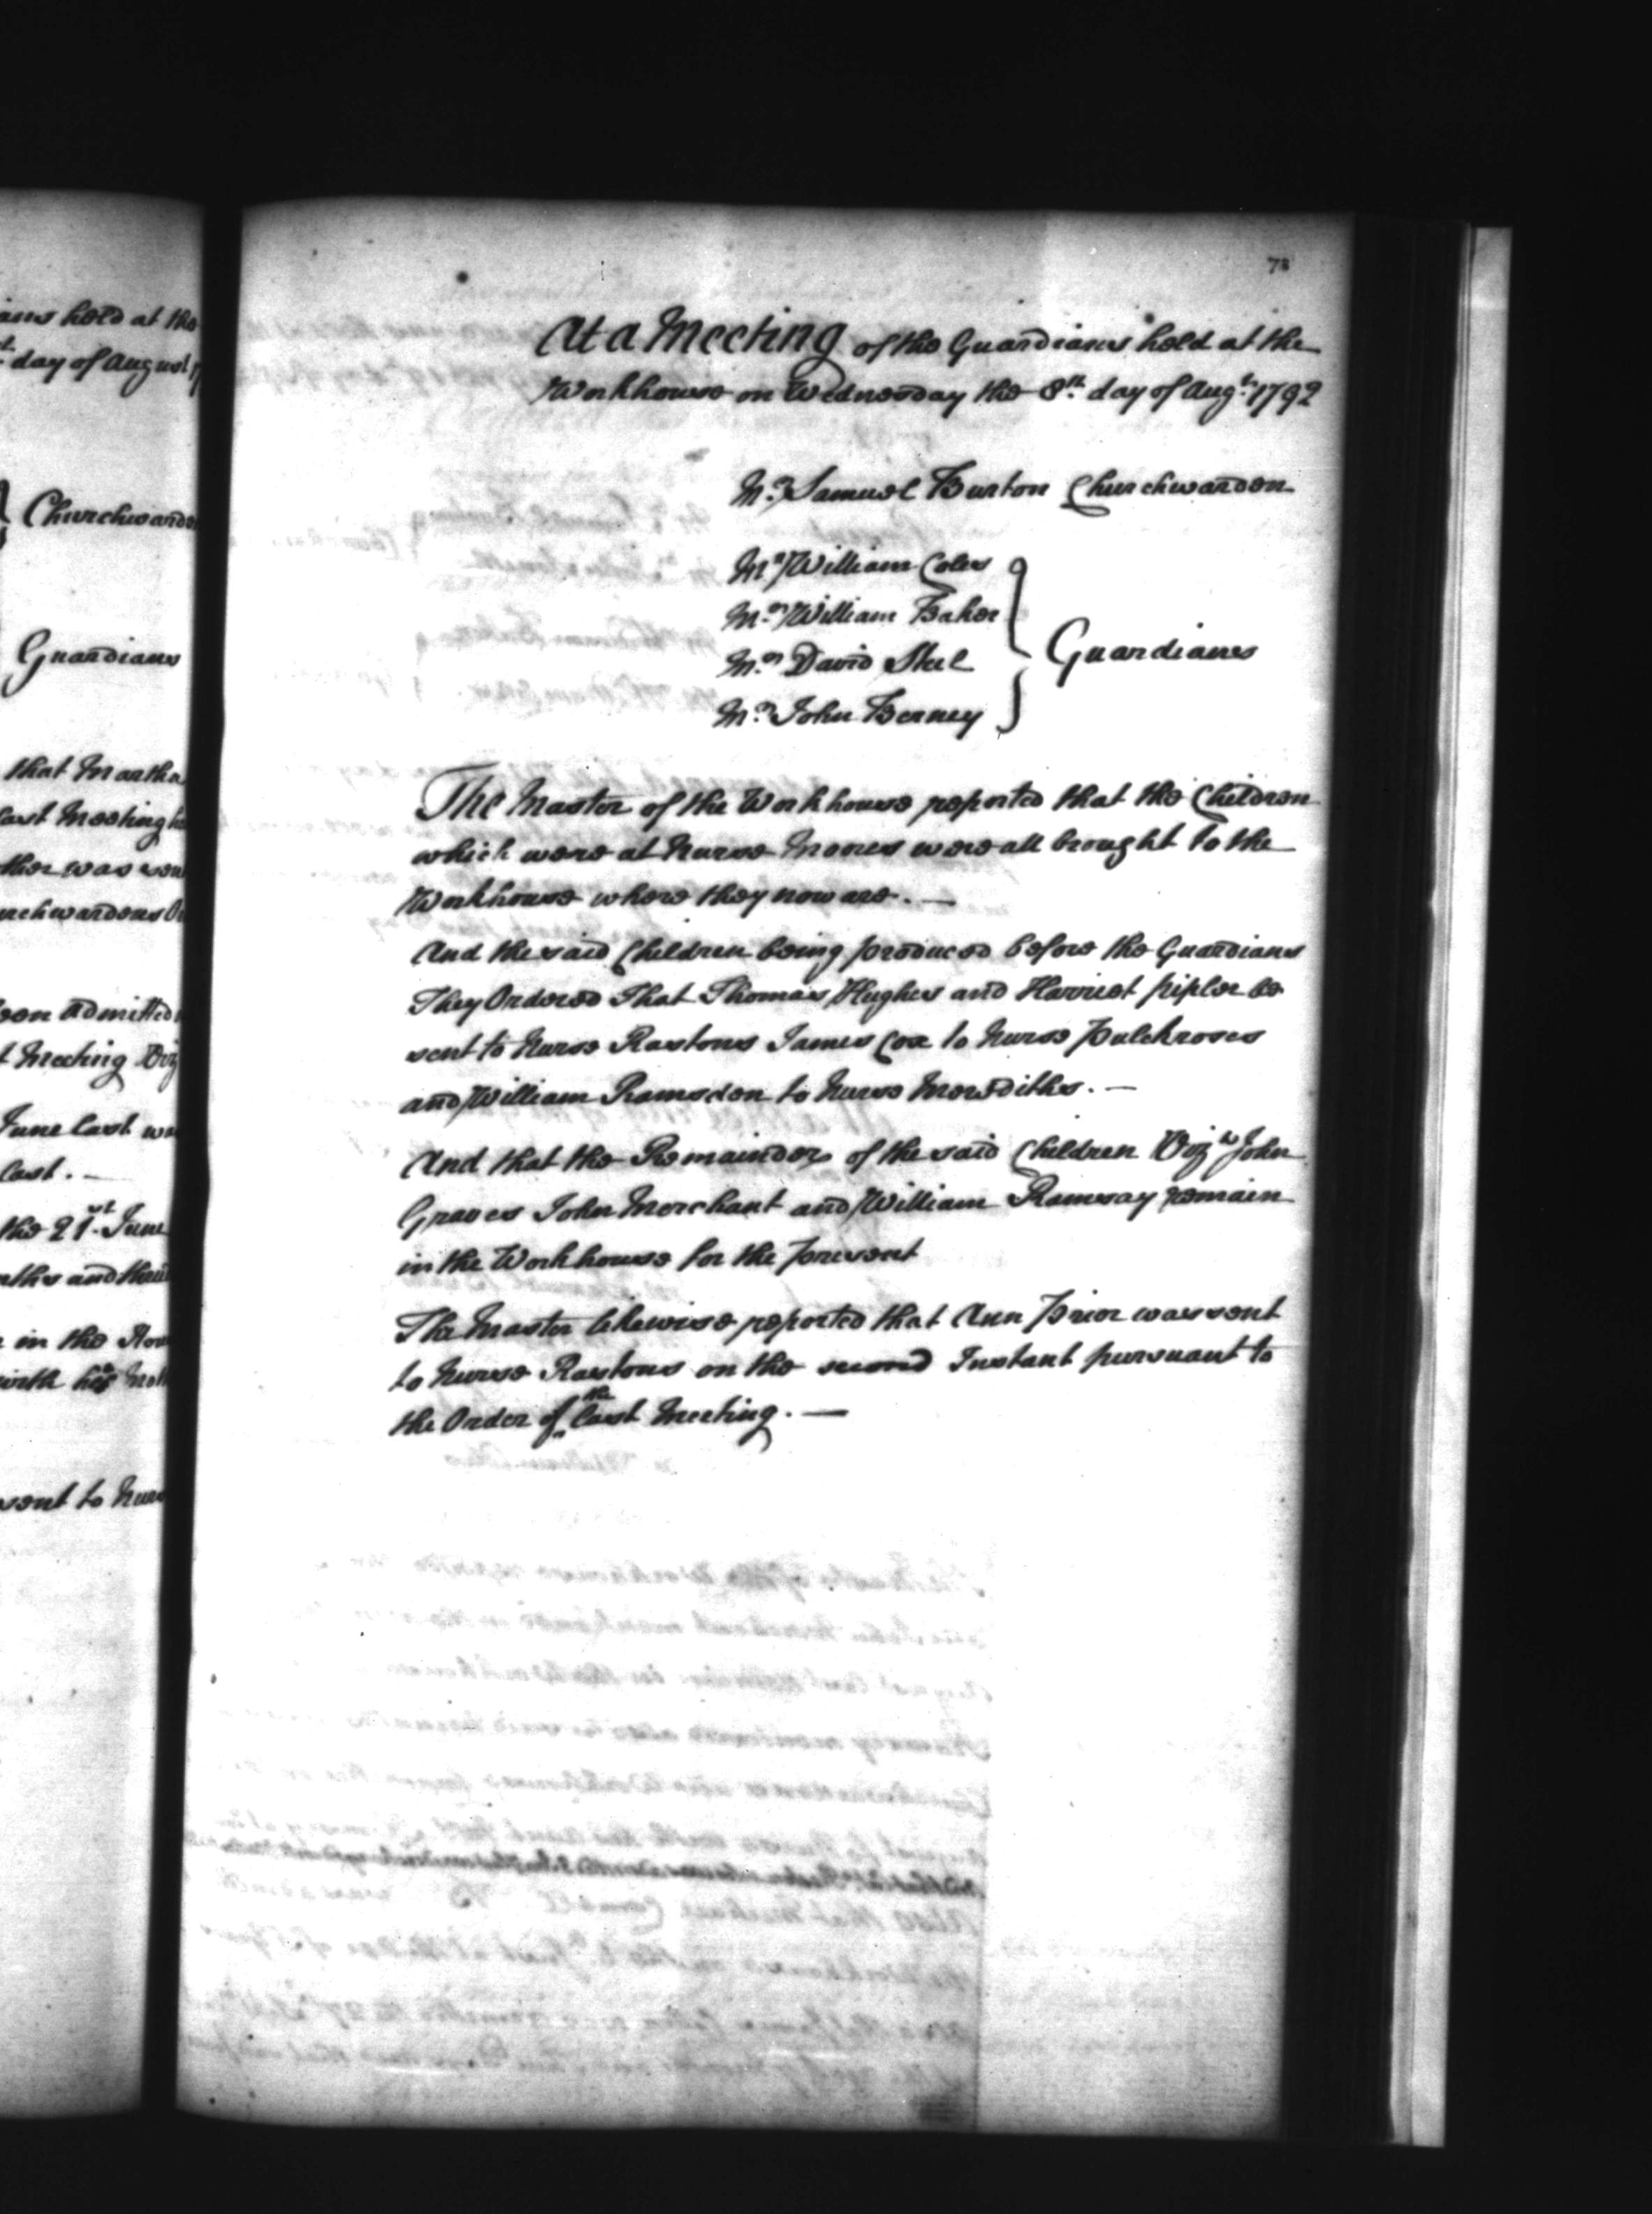 ans held at the
day of August
Churchwarde
Guardians
that Martha
Last Meeting
ther was sen
urchwardens Or
een admitted
t Meeting Viz
June last wa
last. —
the 21st June
nths and thr
in the
with his Moth
sent to Nurs
78
At a Meeting of the Guardians held at the
Workhouse on Wednesday the 8th. day of Augt. 1792
Mr. Samuel Burton Churchwarden
Mr. William Coles
Mr. William Baker
Mr. David Steel
Mr. John Berney
Guardians
The Master of the Workhouse reported that the Children
which were at Nurse Mones were all brought to the
Workhouse where they now are. —
And the said Children being produced before the Guardians
They Ordered That Thomas Hughes and Harriot Pipler be
sent to Nurse Rastons James Cox to Nurse Pulchroses
and William Ramsden to Nurse Merediths. —
And that the Remainder of the said Children Vizt. John
Graves John Merchant and William Ramsay remain
in the Workhouse for the present
The Master likewise reported that Ann Prior was sent
to Nurse Rastons on the second Instant pursuant to
the Order of the last Meeting. —